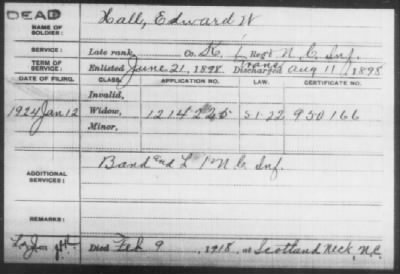 DEAD
NAME OF SOLDIER: Hall, Edward W
SERVICE: Late rank, Co. K, 1 Reg't N.C. Inf.
TERM OF SERVICE: Enlisted June 21, 1898 Trans Discharged Aug 11, 1898
DATE OF FILING. CLASS. APPLICATION NO. LAW. CERTIFICATE NO.
Invalid,
1924 Jan 12 Widow, 1214225 S1-22 950166
Minor,
ADDITIONAL SERVICES: Band and L 1 N.C. Inf.
REMARKS:
Died Feb 9, 1918, at Scotland Neck, N.C.